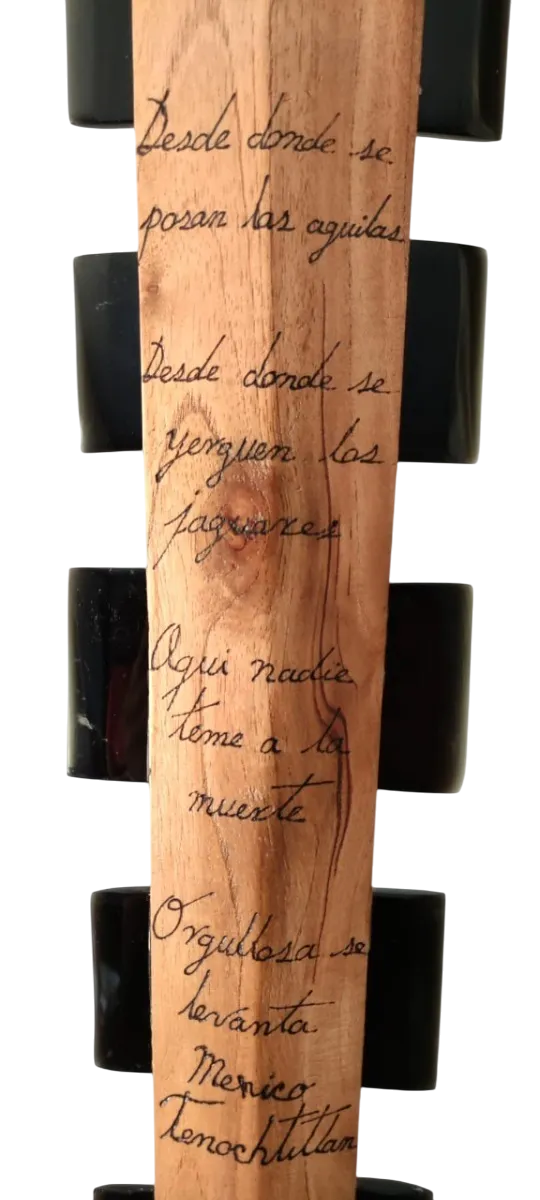 Desde donde se
posan las aguilas
Desde donde se
yerguen los
jaguares
Aqui nadie
teme a la
muerte
Orgullosa se
levanta
Mexico
Tenochtitlan